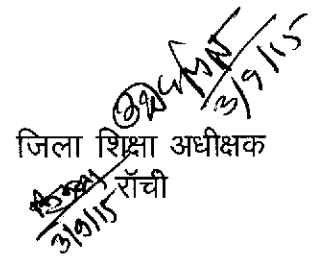 3/9/15
जिला शिक्षा अधीक्षक
रॉची
3/9/15